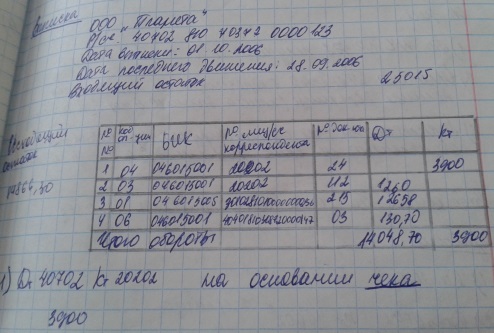 выписка
ООО "Планета"
Р/сч 40702 810 40342 0000123
Дата выписки: 01.10.2006
Дата последнего движения: 28.09.2006
Входящий остаток 25015
Исходящий остаток
№ № код оп-ции БИК № лиц/сч корреспондента № док-та Дт Кт
1 04 046015001 20202 24 3900
2 03 046015001 20202 112 1260
3 01 046015005 215 12658
4 06 046015001 03 130,70
Итого обороты 14048,70 3900
1) Дт 40702 Кт 20202 на основании чека
3900